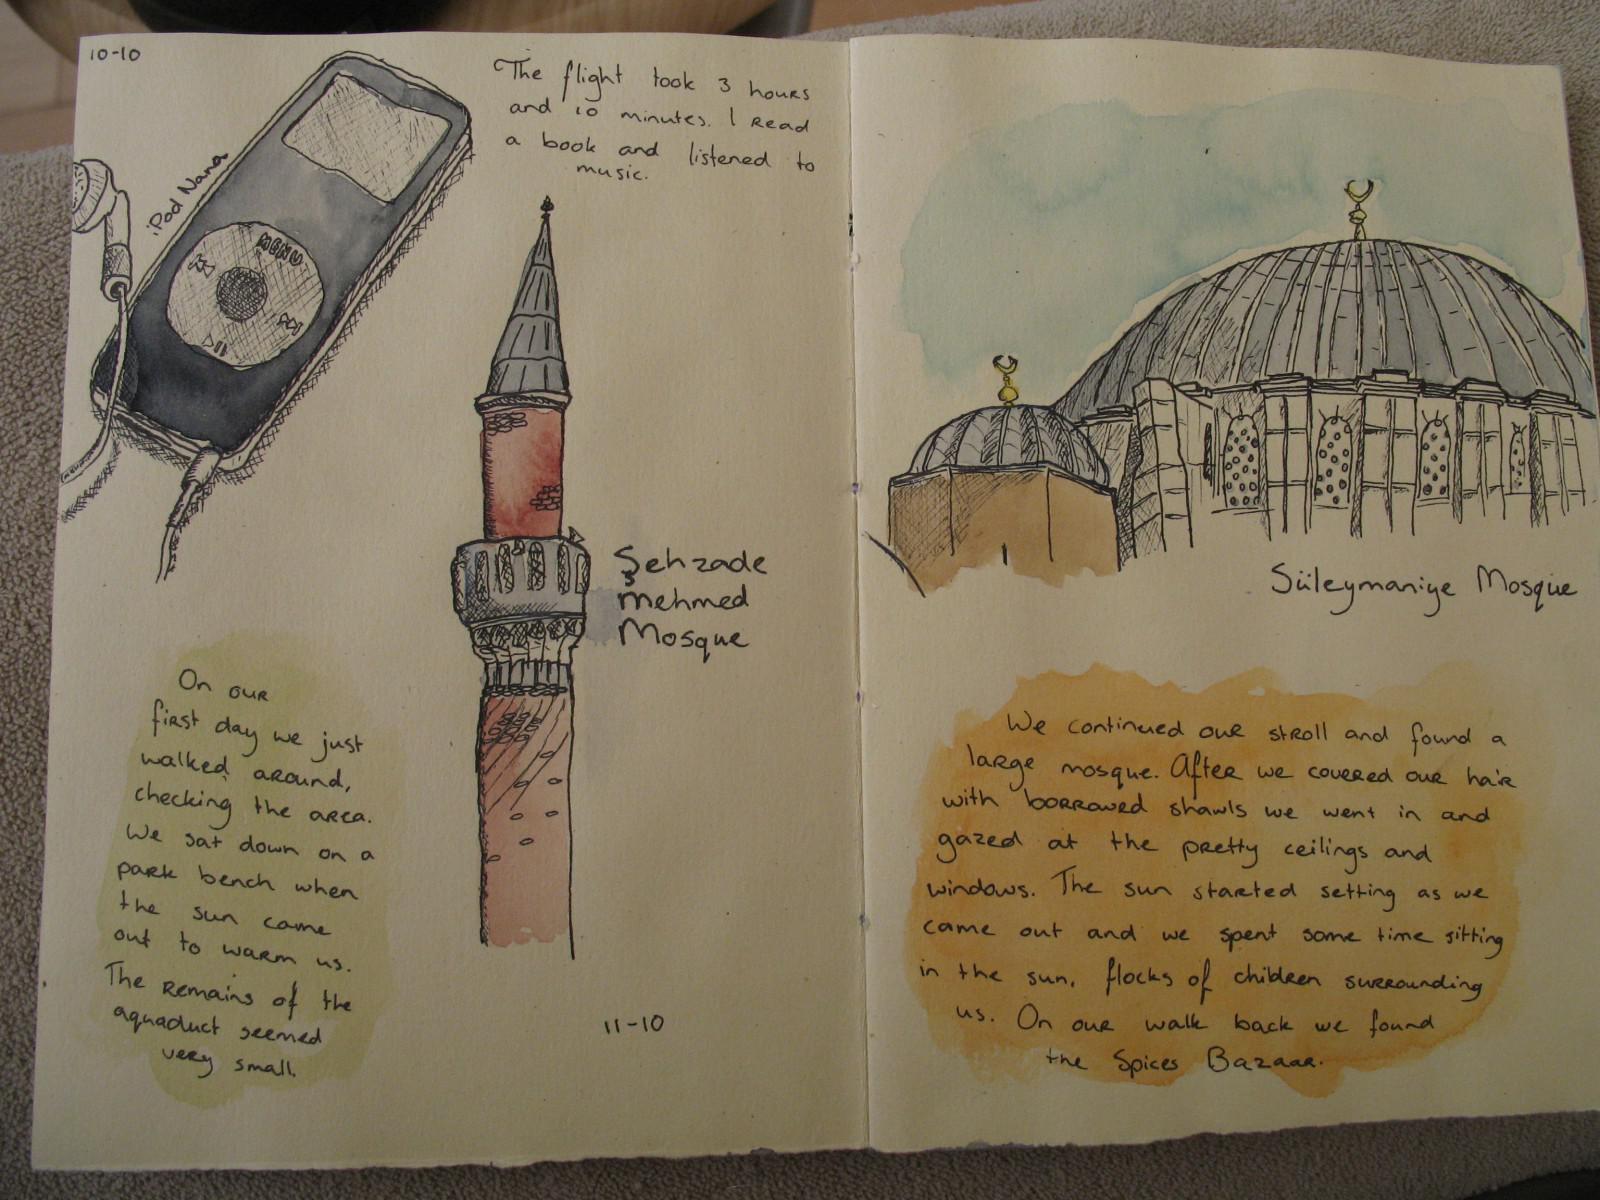 10-10
iPod Nano
MENU
The flight took 3 hours
and 10 minutes. I read
a book and listened to
music.
Şehzade
Mehmed
Mosque
On our
first day we just
walked around,
checking the area.
We sat down on a
park bench when
the sun came
out to warm us.
The remains of the
aquaduct seemed
very small.
11-10
Süleymaniye Mosque
We continued our stroll and found a
large mosque. After we covered our hair
with borrowed shawls we went in and
gazed at the pretty ceilings and
windows. The sun started setting as we
came out and we spent some time sitting
in the sun, flocks of children surrounding
us. On our walk back we found
the Spices Bazaar.